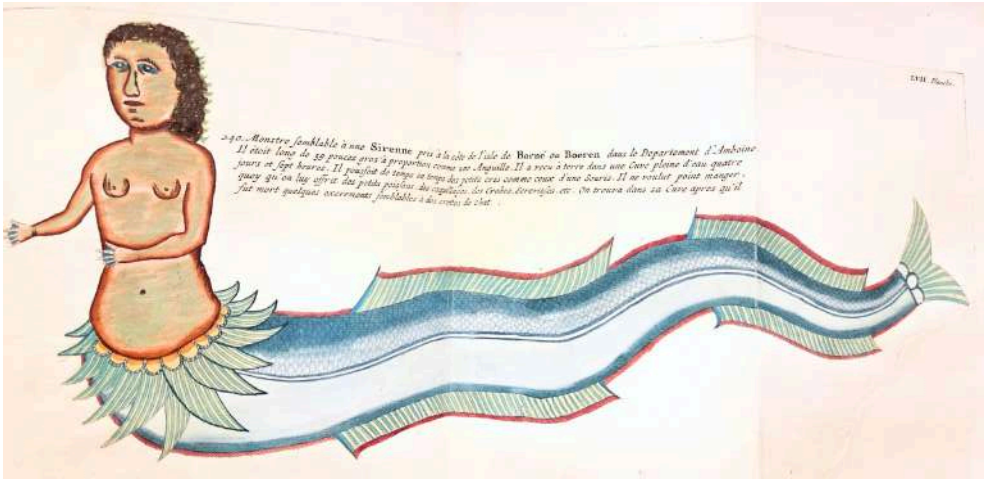 LVII. Planche.
240. Monstre semblable à une Sirenne pris à la côte de l'isle de Borné ou Boeren dans le Departement d'Amboine
Il étoit long de 59 pouces gros à proportion comme une Anguille. Il a vecu à terre dans une Cuve pleine d'eau quatre
jours et sept heures. Il poussoit de temps en temps des petits cris comme ceux d'une Souris. Il ne voulut point manger,
quoy qu'on luy offrit des petits poissons, des coquillages, des Crabes, Ecrevisses, etc. On trouva dans sa Cuve apres qu'il
fut mort quelques excrements semblables à des crotes de chat.